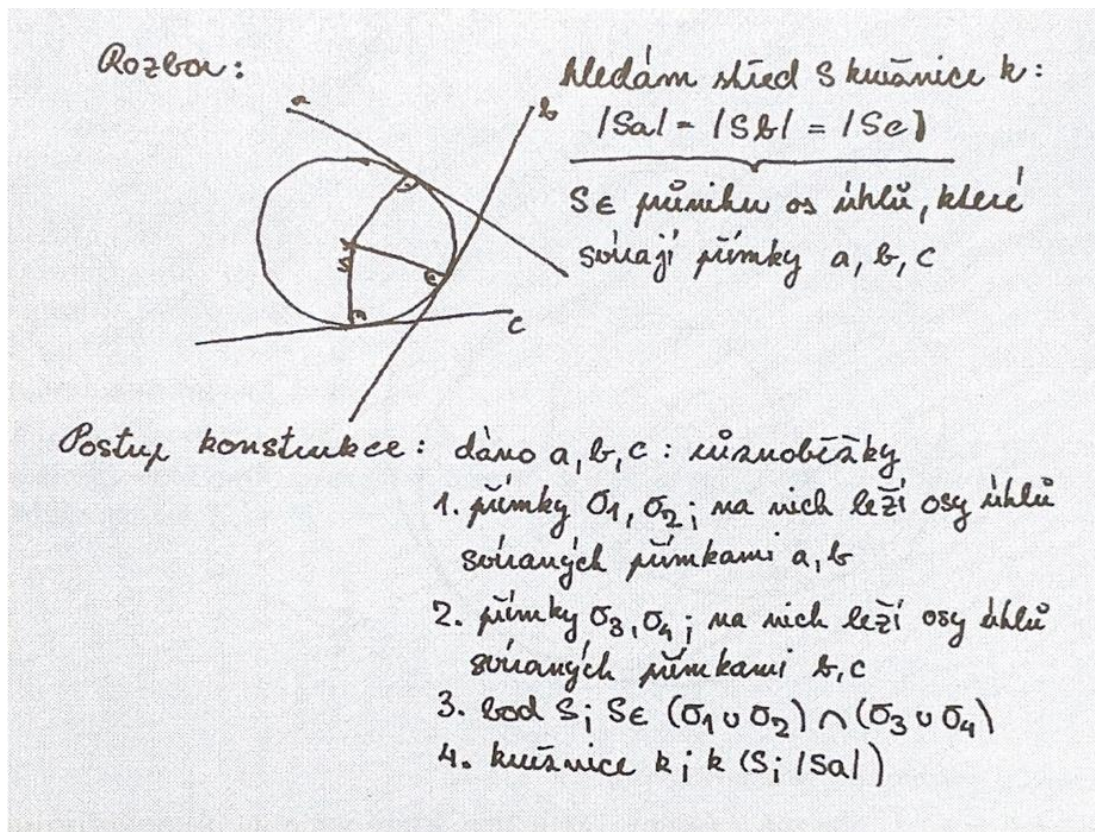 Rozbor:
a
b
c
S
hledám střed S kružnice k:
|Sa| = |Sb| = |Sc|
S ∈ průniku os úhlů, které
svírají přímky a, b, c
Postup konstrukce: dáno a, b, c: různoběžky
1. přímky σ1, σ2; na nich leží osy úhlů
svíraných přímkami a, b
2. přímky σ3, σ4; na nich leží osy úhlů
svíraných přímkami b, c
3. bod S; S ∈ (σ1 ∪ σ2) ∩ (σ3 ∪ σ4)
4. kružnice k; k (S; |Sa|)